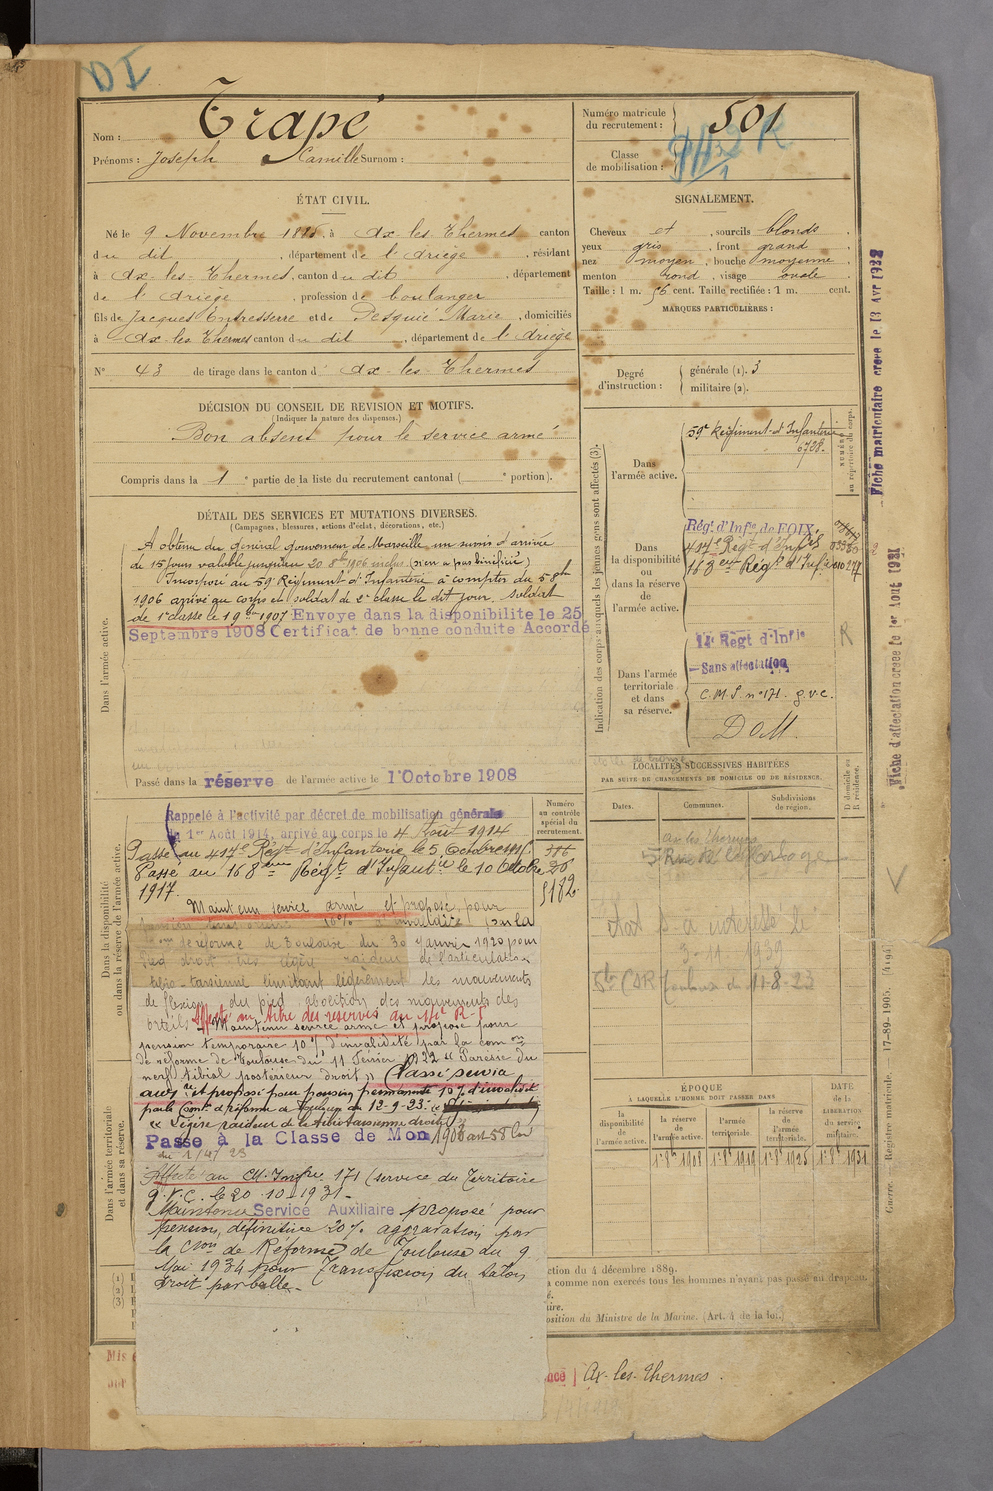 DI
Nom : Trapé
Prénoms : Joseph Camille Surnom :
Numéro matricule du recrutement : 501
Classe de mobilisation :
ÉTAT CIVIL.
Né le 9 Novembre à Ax-les-Thermes canton
du dit, département de l'Ariège, résidant
à Ax-les-Thermes, canton du dit, département
de l'Ariège, profession de boulanger
fils de Jacques Entresserre et de Pesquié Marie, domiciliés
à Ax-les-Thermes canton du dit, département de l'Ariège
N° 43 de tirage dans le canton d'Ax-les-Thermes
SIGNALEMENT.
Cheveux et, sourcils blonds.
yeux gris, front grand
nez moyen, bouche moyenne.
menton rond, visage ovale.
Taille : 1 m. 56 cent. Taille rectifiée : 1 m. cent.
MARQUES PARTICULIÈRES :
Degré d'instruction :
générale (1). 3
militaire (2).
DÉCISION DU CONSEIL DE REVISION ET MOTIFS.
(Indiquer la nature des dispenses.)
Bon absent pour le service armé
Compris dans la 1e partie de la liste du recrutement cantonal ( e portion).
DÉTAIL DES SERVICES ET MUTATIONS DIVERSES.
(Campagnes, blessures, actions d'éclat, décorations, etc.)
Dans l'armée active.
A obtenu du général gouverneur de Marseille un sursis d'arrivée
de 15 jours valable jusqu'au 20 8bre 1906 inclus (n'en a pas bénéficié)
Incorporé au 59e Régiment d'Infanterie à compter du 5 8bre
1906 arrivé au corps et soldat de 2e classe le dit jour. Soldat
de 1e classe le 19 1907 Envoyé dans la disponibilité le 25
Septembre 1908 Certificat de bonne conduite Accordé
Passé dans la réserve de l'armée active le 1 Octobre 1908
Indication des corps auxquels les jeunes gens sont affectés (3).
Dans l'armée active.
59e Régiment d'Infanterie
6728.
NUMÉRO au répertoire du corps.
Dans la disponibilité ou dans la réserve de l'armée active.
Régt d'Infie de FOIX
414e Régt d'Infie
168eme Régt d'Infie
Dans l'armée territoriale et dans sa réserve.
14e Régt d'Infie
Sans affectation
C.M.I. n° 171. g.v.c.
D O M.
R
Fiche matriculaire créée le 13 Avr 1932
Fiche d'affectation créée le 1er Aout 1931
LOCALITÉS SUCCESSIVES HABITÉES
PAR SUITE DE CHANGEMENTS DE DOMICILE OU DE RÉSIDENCE.
Dates. Communes. Subdivisions de région. D domicile ou R résidence.
Ax les Thermes
5 Rue de l'Horloge
3-11 1939
Dans la disponibilité ou dans la réserve de l'armée active.
Numéro au contrôle spécial du recrutement.
Rappelé à l'activité par décret de mobilisation générale
du 1er Août 1914, arrivé au corps le 4 Août 1914
Passé au 414e Régt d'Infanterie le 5 Octobre
Passé au 168eme Régt d'Infantie le 10 Octobre
1917.
Maintenu service armé et proposé pour
10% d'invalidité par la
de réforme de Toulouse du 30 Janvier 1920 pour
pied droit très légère raideur de l'articulation
tibio-tarsienne limitant légèrement les mouvements
de flexion du pied abolition des mouvements des
orteils
Affecté au titre des réserves au
Maintenu service armé et proposé pour
pension temporaire 10% d'invalidité par la comon
de réforme de Toulouse du 11 Février 1922 "Parésie du
nerf tibial postérieur droit" Classé service
armé et proposé pour pension permanente 10% d'invalidité
par la Comn de réforme de Toulouse du 12-9-23
"Légère raideur de la tibio tarsienne droite"
Passé à la Classe de Mon 1906 art 58 loi
du 1/4/23
Dans l'armée territoriale et dans sa réserve.
Affecté au C.M. Infie 171 (service du Territoire
g.V.C. le 20.10.1931.
Maintenu Service Auxiliaire Proposé pour
pension définitive 20% aggravation par
la Cion de Réforme de Toulouse du 9
Mai 1934 pour Transfixion du talon
droit par balle.
ÉPOQUE
À LAQUELLE L'HOMME DOIT PASSER DANS
la disponibilité de l'armée active.
la réserve de l'armée active. 1er 8bre 1908
l'armée territoriale. 1er 8bre 1919
la réserve de l'armée territoriale. 1er 8bre 1925
DATE de la LIBÉRATION du service militaire. 1er 8bre 1931
ction du 4 décembre 1889.
a comme non exercés tous les hommes n'ayant pas passé au drapeau.
osition du Ministre de la Marine. (Art. 4 de la loi.)
Guerre. — Registre matricule. — 17-89-1905. [419]
Mis
Ax-les-Thermes.